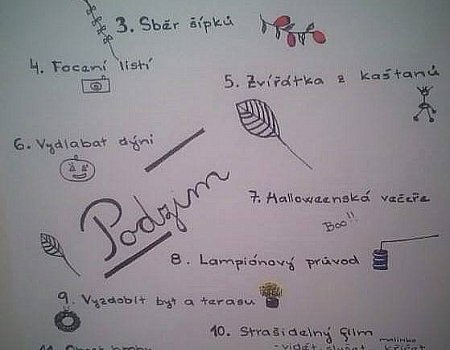 3. Sběr šípků
4. Focení listí
5. Zvířátka z kaštanů
6. Vydlabat dýni
Podzim
7. Halloweenská večeře
Boo!!
8. Lampiónový průvod
9. Vyzdobit byt a terasu
10. Strašidelný film
malinko